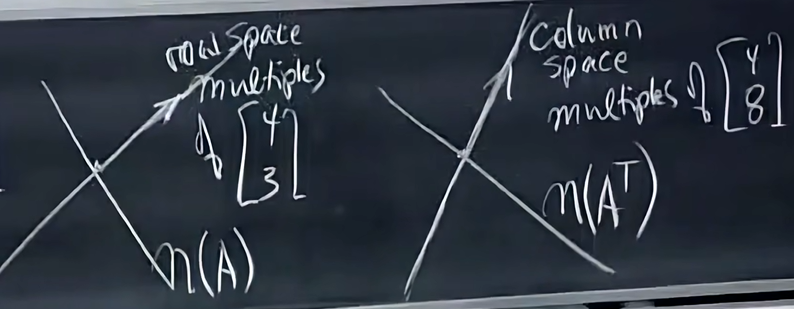 row space
multiples
of [4 3]
N(A)
column
space
multiples of [4 8]
N(Aᵀ)